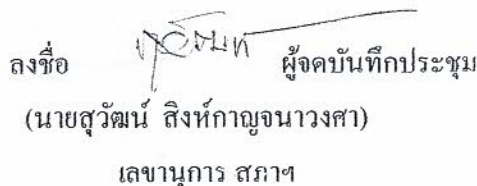 ลงชื่อ ผู้จดบันทึกประชุม
(นายสุวัฒน์ สิงห์กาญจนาวงศา)
เลขานุการ สภาฯ